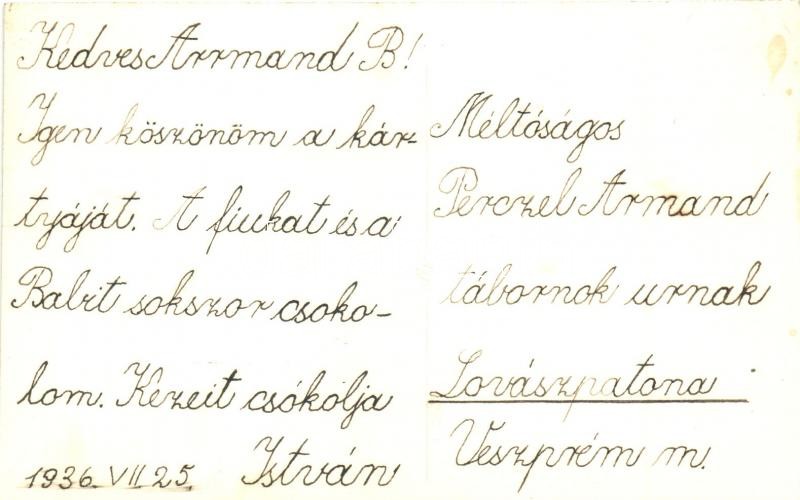 Kedves Arrmand B!
Igen köszönöm a kár-
tyáját. A fiukat és a
Babit sokszor csoko-
lom. Kezeit csókolja
István
1936. VII 25.
Méltóságos
Perczel Armand
tábornok urnak
Lovászpatona
Veszprém m.